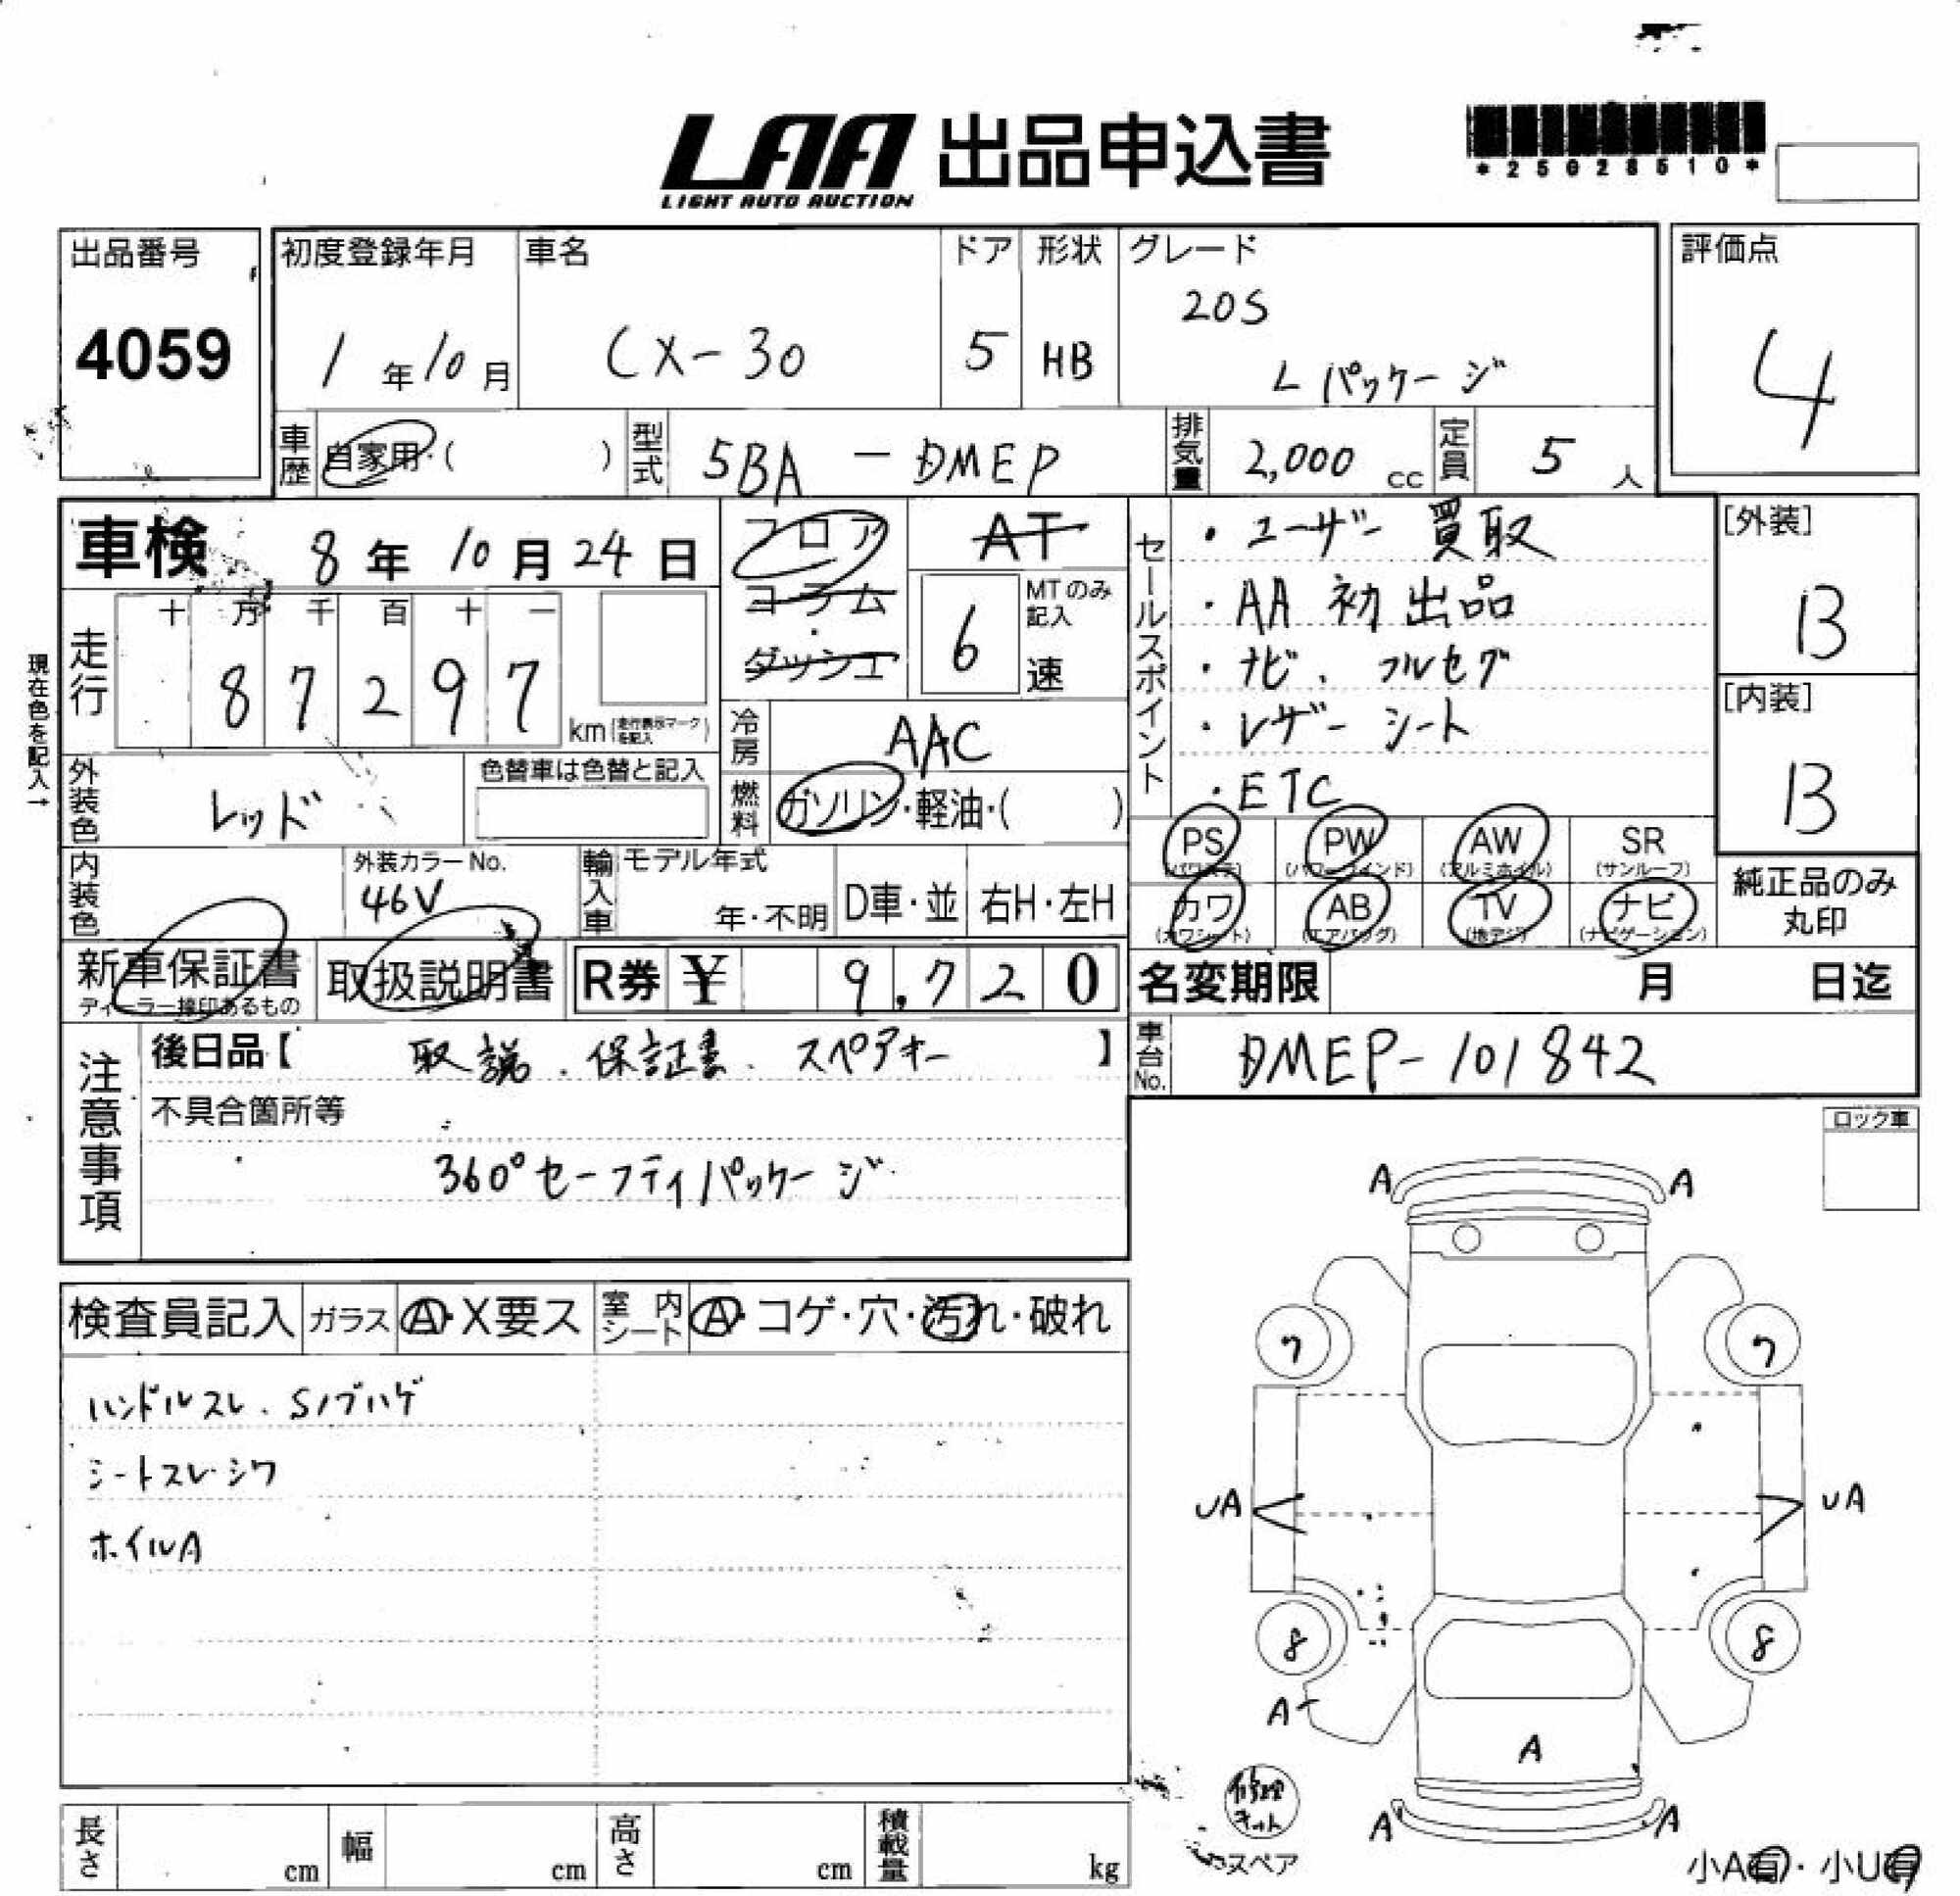 LAA 出品申込書
LIGHT AUTO AUCTION
*25028510*
出品番号
4059
初度登録年月
1年10月
車名
CX-30
ドア
5
形状
HB
グレード
20S
Lパッケージ
評価点
4
車歴
自家用・( )
型式
5BA-DMEP
排気量
2,000 cc
定員
5人
車検 8年10月24日
フロア
コラム
・
ダッシュ
AT
6
MTのみ記入
速
セールスポイント
・ユーザー買取
・AA初出品
・ナビ、フルセグ
・レザーシート
・ETC
[外装]
B
[内装]
B
現在色を記入→
走行
十 万 千 百 十 一
8 7 2 9 7
km(走行表示マークを記入)
冷房
AAC
燃料
ガソリン・軽油・( )
外装色
レッド
色替車は色替と記入
内装色
外装カラーNo.
46V
輸入車
モデル年式
年・不明
D車・並
右H・左H
PS (パワステ)
PW (パワーウインド)
AW (アルミホイル)
SR (サンルーフ)
カワ (カワシート)
AB (エアバッグ)
TV (地デジ)
ナビ (ナビゲーション)
純正品のみ丸印
新車保証書
ディーラー捺印あるもの
取扱説明書
R券 ¥ 9,720
名変期限 月 日迄
車台No.
DMEP-101842
注意事項
後日品【 取説、保証書、スペアキー 】
不具合箇所等
360°セーフティパッケージ
ロック車
検査員記入
ガラス
A・X要ス
室内シート
A・コゲ・穴・汚れ・破れ
ハンドルスレ、Sノブハゲ
シートスレ・シワ
ホイルA
A A
7 7
UA UA
8 8
A
A
A A
修理キット
スペア
小A有・小U有
長さ cm
幅 cm
高さ cm
積載量 kg